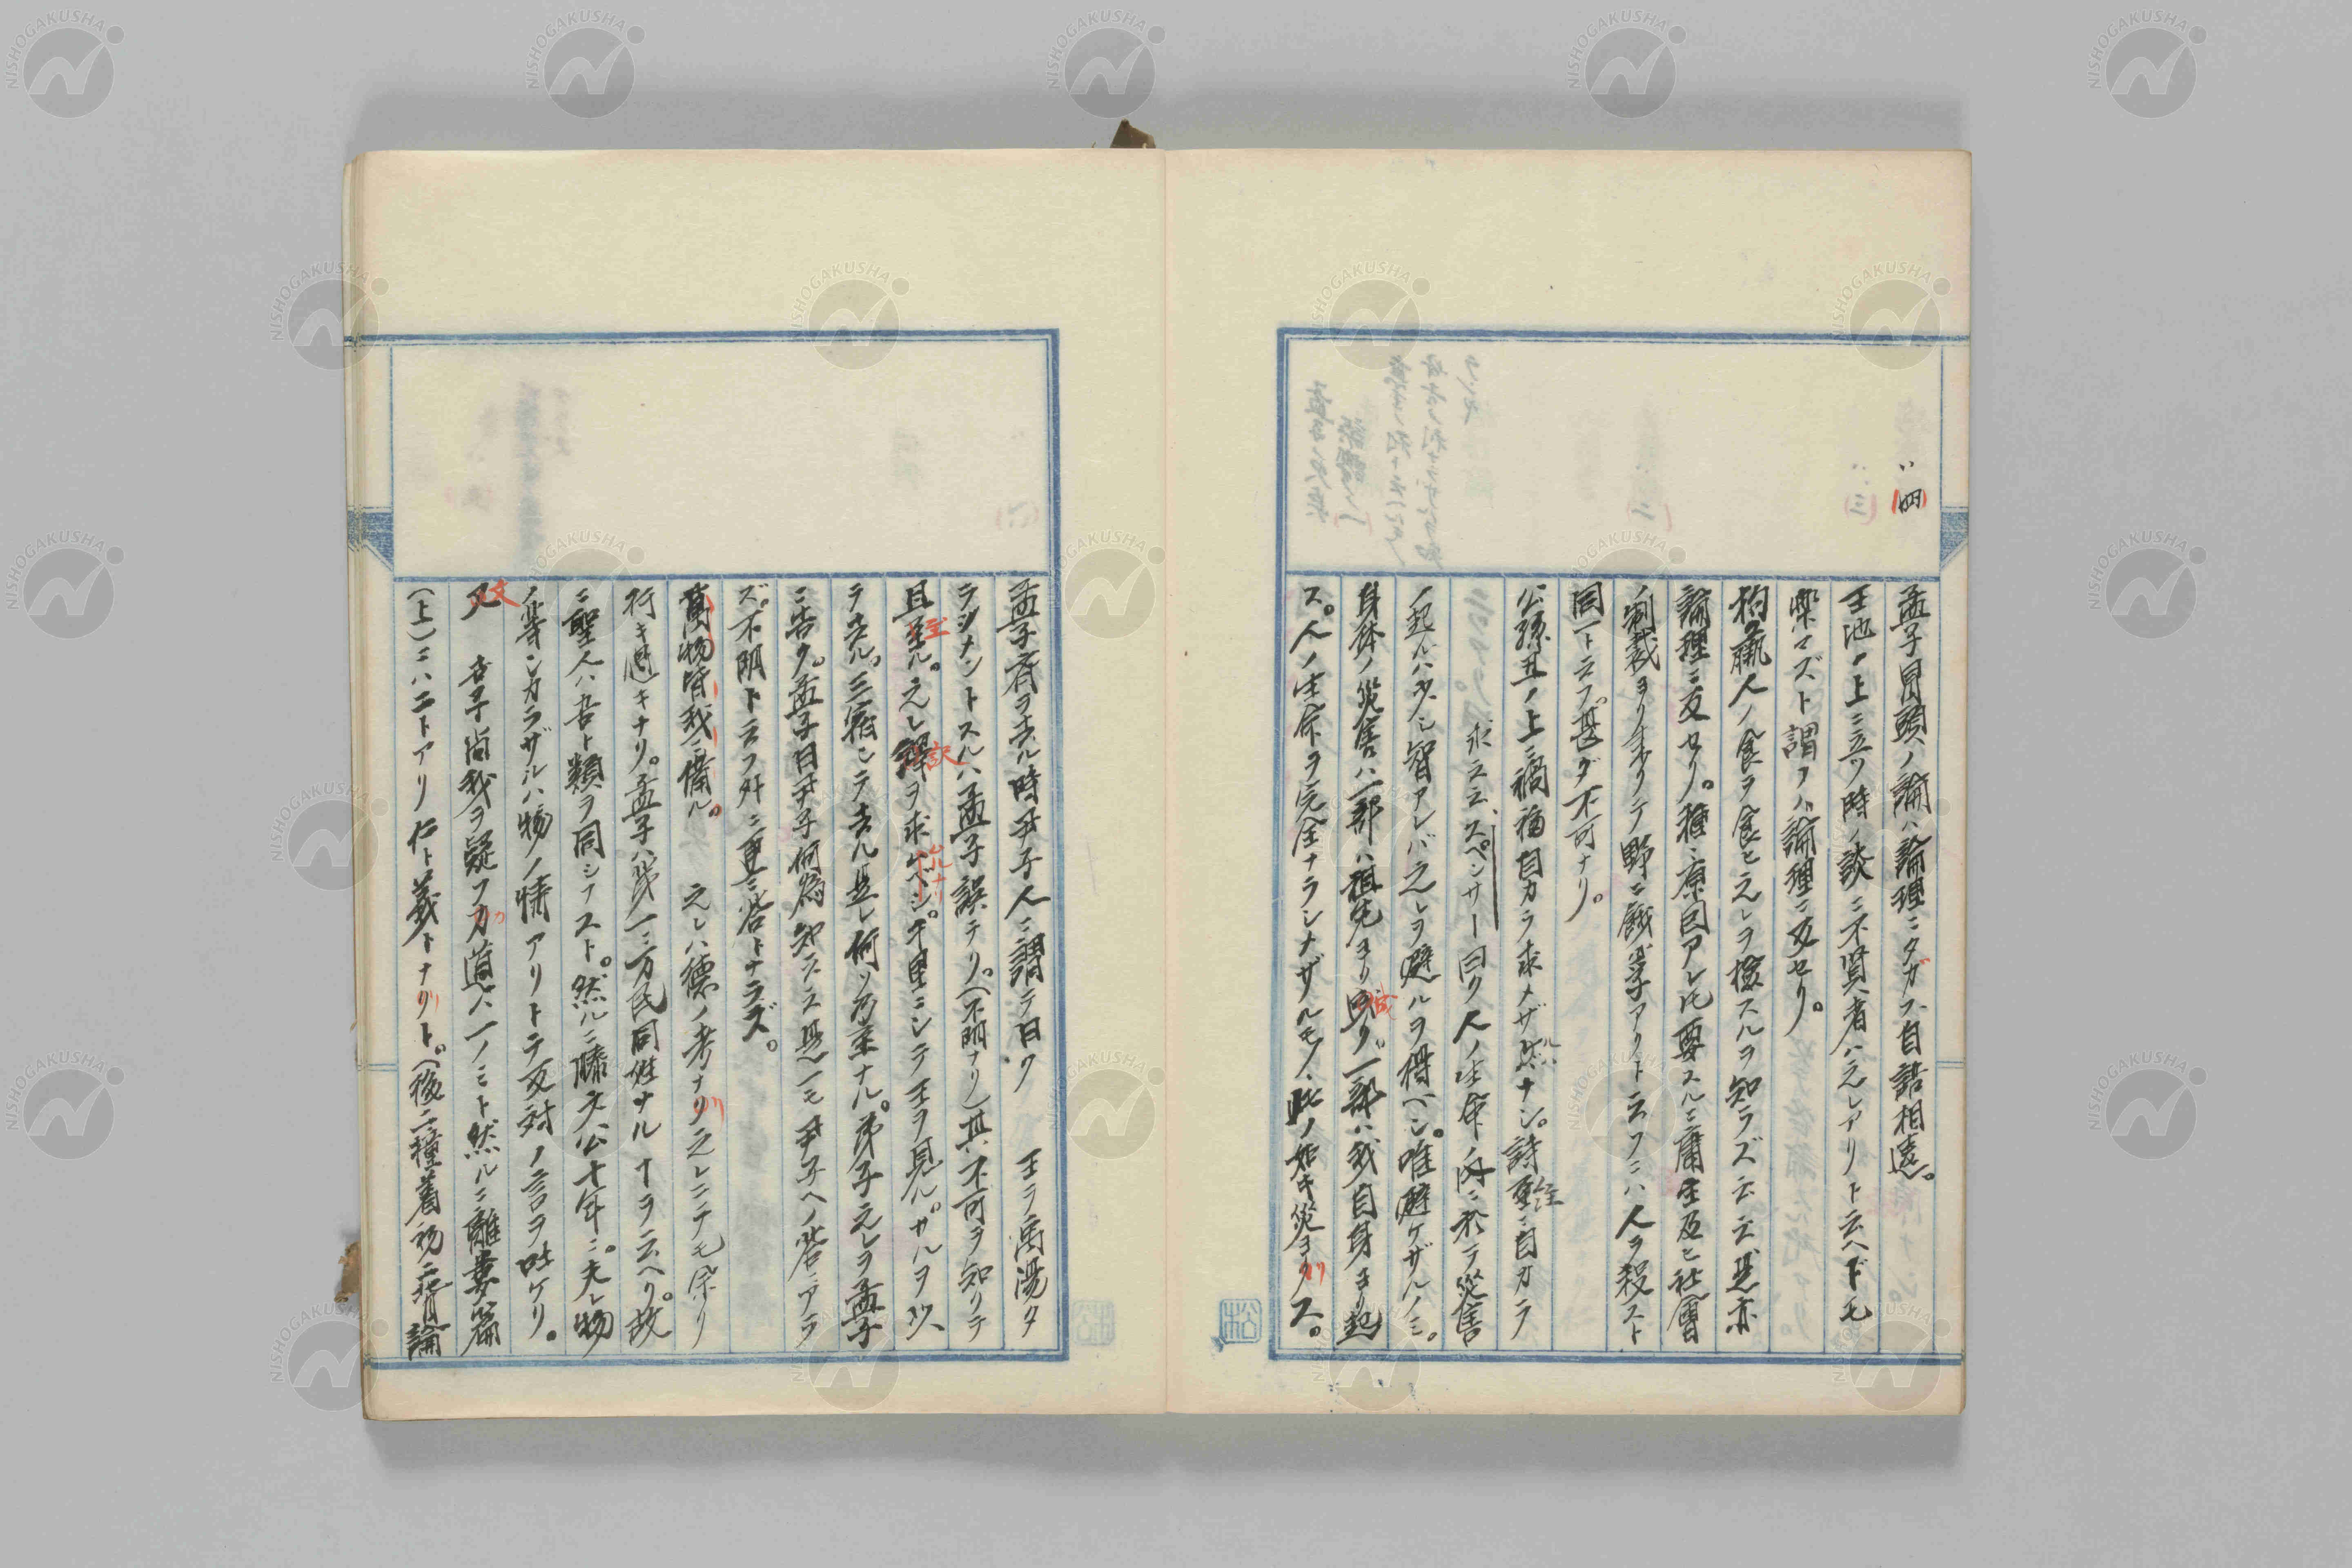 (四)
孟子冒頭ノ論ハ論理ニタガフ、自語相違。
王池ノ上ニ立ツ時ノ談ニ不賢者ハ之レアリト云ヘドモ
樂マズト謂フハ論理ニ反セリ。
狗彘人ノ食ヲ食ヒ之レヲ檢スルヲ知ラズ云云是亦
論理ニ反セリ。種々原因アレ𪜈要スルニ庸生及ヒ社會
ノ制裁ヨリ来リテ野ニ餓莩アリト云フニハ人ヲ殺スト
同一ト云フ。甚ダ不可ナリ。
公孫丑ノ上ニ禍福自カラ求メザルハナシ。詩ニ自カラ
求云云、スペンサー曰ク人ノ生命ノ内ニ於テ災害
ノ起ルハ少シ智アレバ之レヲ避ルヲ得ベシ。唯避ケザルノミ。
身体ノ災害ハ一部ハ祖先ヨリ成リ、一部ハ我自身ヨリ起
ス。人ノ生命ヲ完全ナラシナザルモノ、此ノ如キ災ヨリス。
孟子齊ヲ去ル時尹子人ニ謂テ曰ク 王ヲ禹湯タ
ラシナントスルハ孟子誤テリ。(不明ナリ)其不可ヲ知リテ
且至ル。之レ訳ヲ求ムルナリ。千里ニシテ王ヲ見ル。ガルヲ以、
テ去ル。三宿シテ去ル是レ何ソ乃至ナル。弟子之レヲ孟子
ニ告ク。孟子曰尹子何為知云云是一モ尹子ヘノ答ニアラ
ズ。不明ト云フ外ニ更ニ答トナラズ。
萬物皆我ニ備ル。 之レハ徳ノ考ナリ之レニテモ余リ
行キ過キナリ。孟子ハ第一ニ万民同姓ナルコヲ云ヘリ。故
ニ聖人ハ吾ト類ヲ同シフスト。然ルニ滕文公十年ニ。夫レ物
ノ等シカラザルハ物ノ情アリトテ反対ノ言ヲ吐ケリ。
又 吾子尚我ヲ疑フカ道ハ一ノミト然ルニ離婁篇
(上)ニハ二トアリ仁ト義トナリト。(後ニ種着ノ場ニ皆論